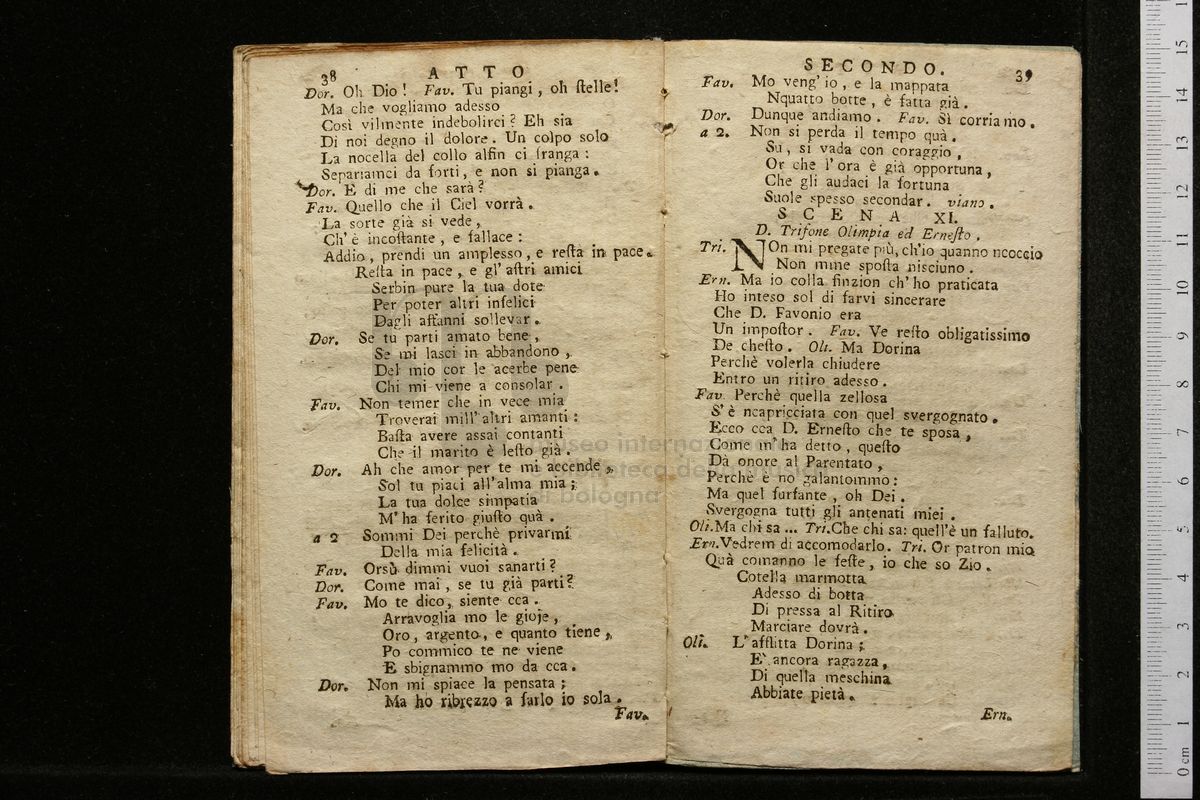 38 ATTO
Dor. Oh Dio! Fav. Tu piangi, oh ſtelle!
Ma che vogliamo adesso
Così vilmente indebolirci? Eh sia
Di noi degno il dolore. Un colpo solo
La nocella del collo alfin ci franga:
Separiamci da forti, e non si pianga.
Dor. E di me che sarà?
Fav. Quello che il Ciel vorrà.
La sorte già si vede,
Ch'è incoſtante, e fallace:
Addio, prendi un amplesso, e reſta in pace.
Reſta in pace, e gl'aſtri amici
Serbin pure la tua dote
Per poter altri infelici
Dagli affanni sollevar.
Dor. Se tu parti amato bene,
Se mi lasci in abbandono,
Del mio cor le acerbe pene
Chi mi viene a consolar.
Fav. Non temer che in vece mia
Troverai mill'altri amanti:
Baſta avere assai contanti
Che il marito è leſto già.
Dor. Ah che amor per te mi accende,
Sol tu piaci all'alma mia;
La tua dolce simpatia
M'ha ferito giuſto quà.
a 2 Sommi Dei perchè privarmi
Della mia felicità.
Fav. Orsù dimmi vuoi sanarti?
Dor. Come mai, se tu già parti?
Fav. Mo te dico, siente cca.
Arravoglia mo le gioje,
Oro, argento, e quanto tiene,
Po commico te ne viene
E sbignammo mo da cca.
Dor. Non mi spiace la pensata;
Ma ho ribrezzo a farlo io sola.
Fav.
SECONDO. 39
Fav. Mo veng'io, e la mappata
Nquatto botte, è fatta già.
Dor. Dunque andiamo. Fav. Sì corriamo.
a 2. Non si perda il tempo quà.
Su, si vada con coraggio,
Or che l'ora è già opportuna,
Che gli audaci la fortuna
Suole spesso secondar. viano.
SCENA XI.
D. Trifone Olimpia ed Erneſto.
Tri. NOn mi pregate più, ch'io quanno ncoccio
Non mme spoſta nisciuno.
Ern. Ma io colla finzion ch'ho praticata
Ho inteso sol di farvi sincerare
Che D. Favonio era
Un impoſtor. Fav. Ve reſto obligatissimo
De cheſto. Oli. Ma Dorina
Perchè volerla chiudere
Entro un ritiro adesso.
Fav. Perchè quella zellosa
S'è ncapricciata con quel svergognato.
Ecco cca D. Erneſto che te sposa,
Come m'ha detto, queſto
Dà onore al Parentato,
Perchè è no galantommo:
Ma quel furfante, oh Dei.
Svergogna tutti gli antenati miei.
Oli. Ma chi sa ... Tri. Che chi sa: quell'è un falluto.
Ern. Vedrem di accomodarlo. Tri. Or patron mio
Quà comanno le feſte, io che so Zio.
Cotella marmotta
Adesso di botta
Di pressa al Ritiro
Marciare dovrà.
Oli. L'afflitta Dorina;
E' ancora ragazza,
Di quella meschina
Abbiate pietà.
Ern.
museo internazionale
biblioteca della musica
di bologna
0 cm 1 2 3 4 5 6 7 8 9 10 11 12 13 14 15